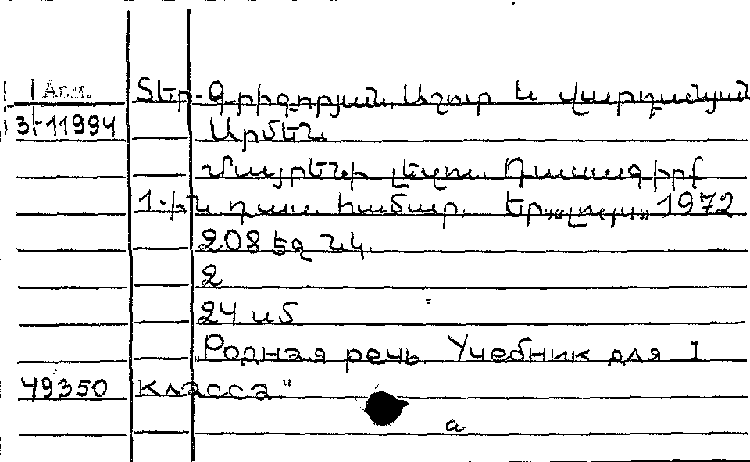 1 Арм. Տեր-Գրիգորյան, Աշոտ և Վարդանյան
3-11994 Արմեն
Մայրենի լեզու. Դասագիրք
1-ին դաս. համար. Եր., «Լույս», 1972
208 էջ նկ.
2
24 սմ
"Родная речь. Учебник для 1
49350 класса"
a